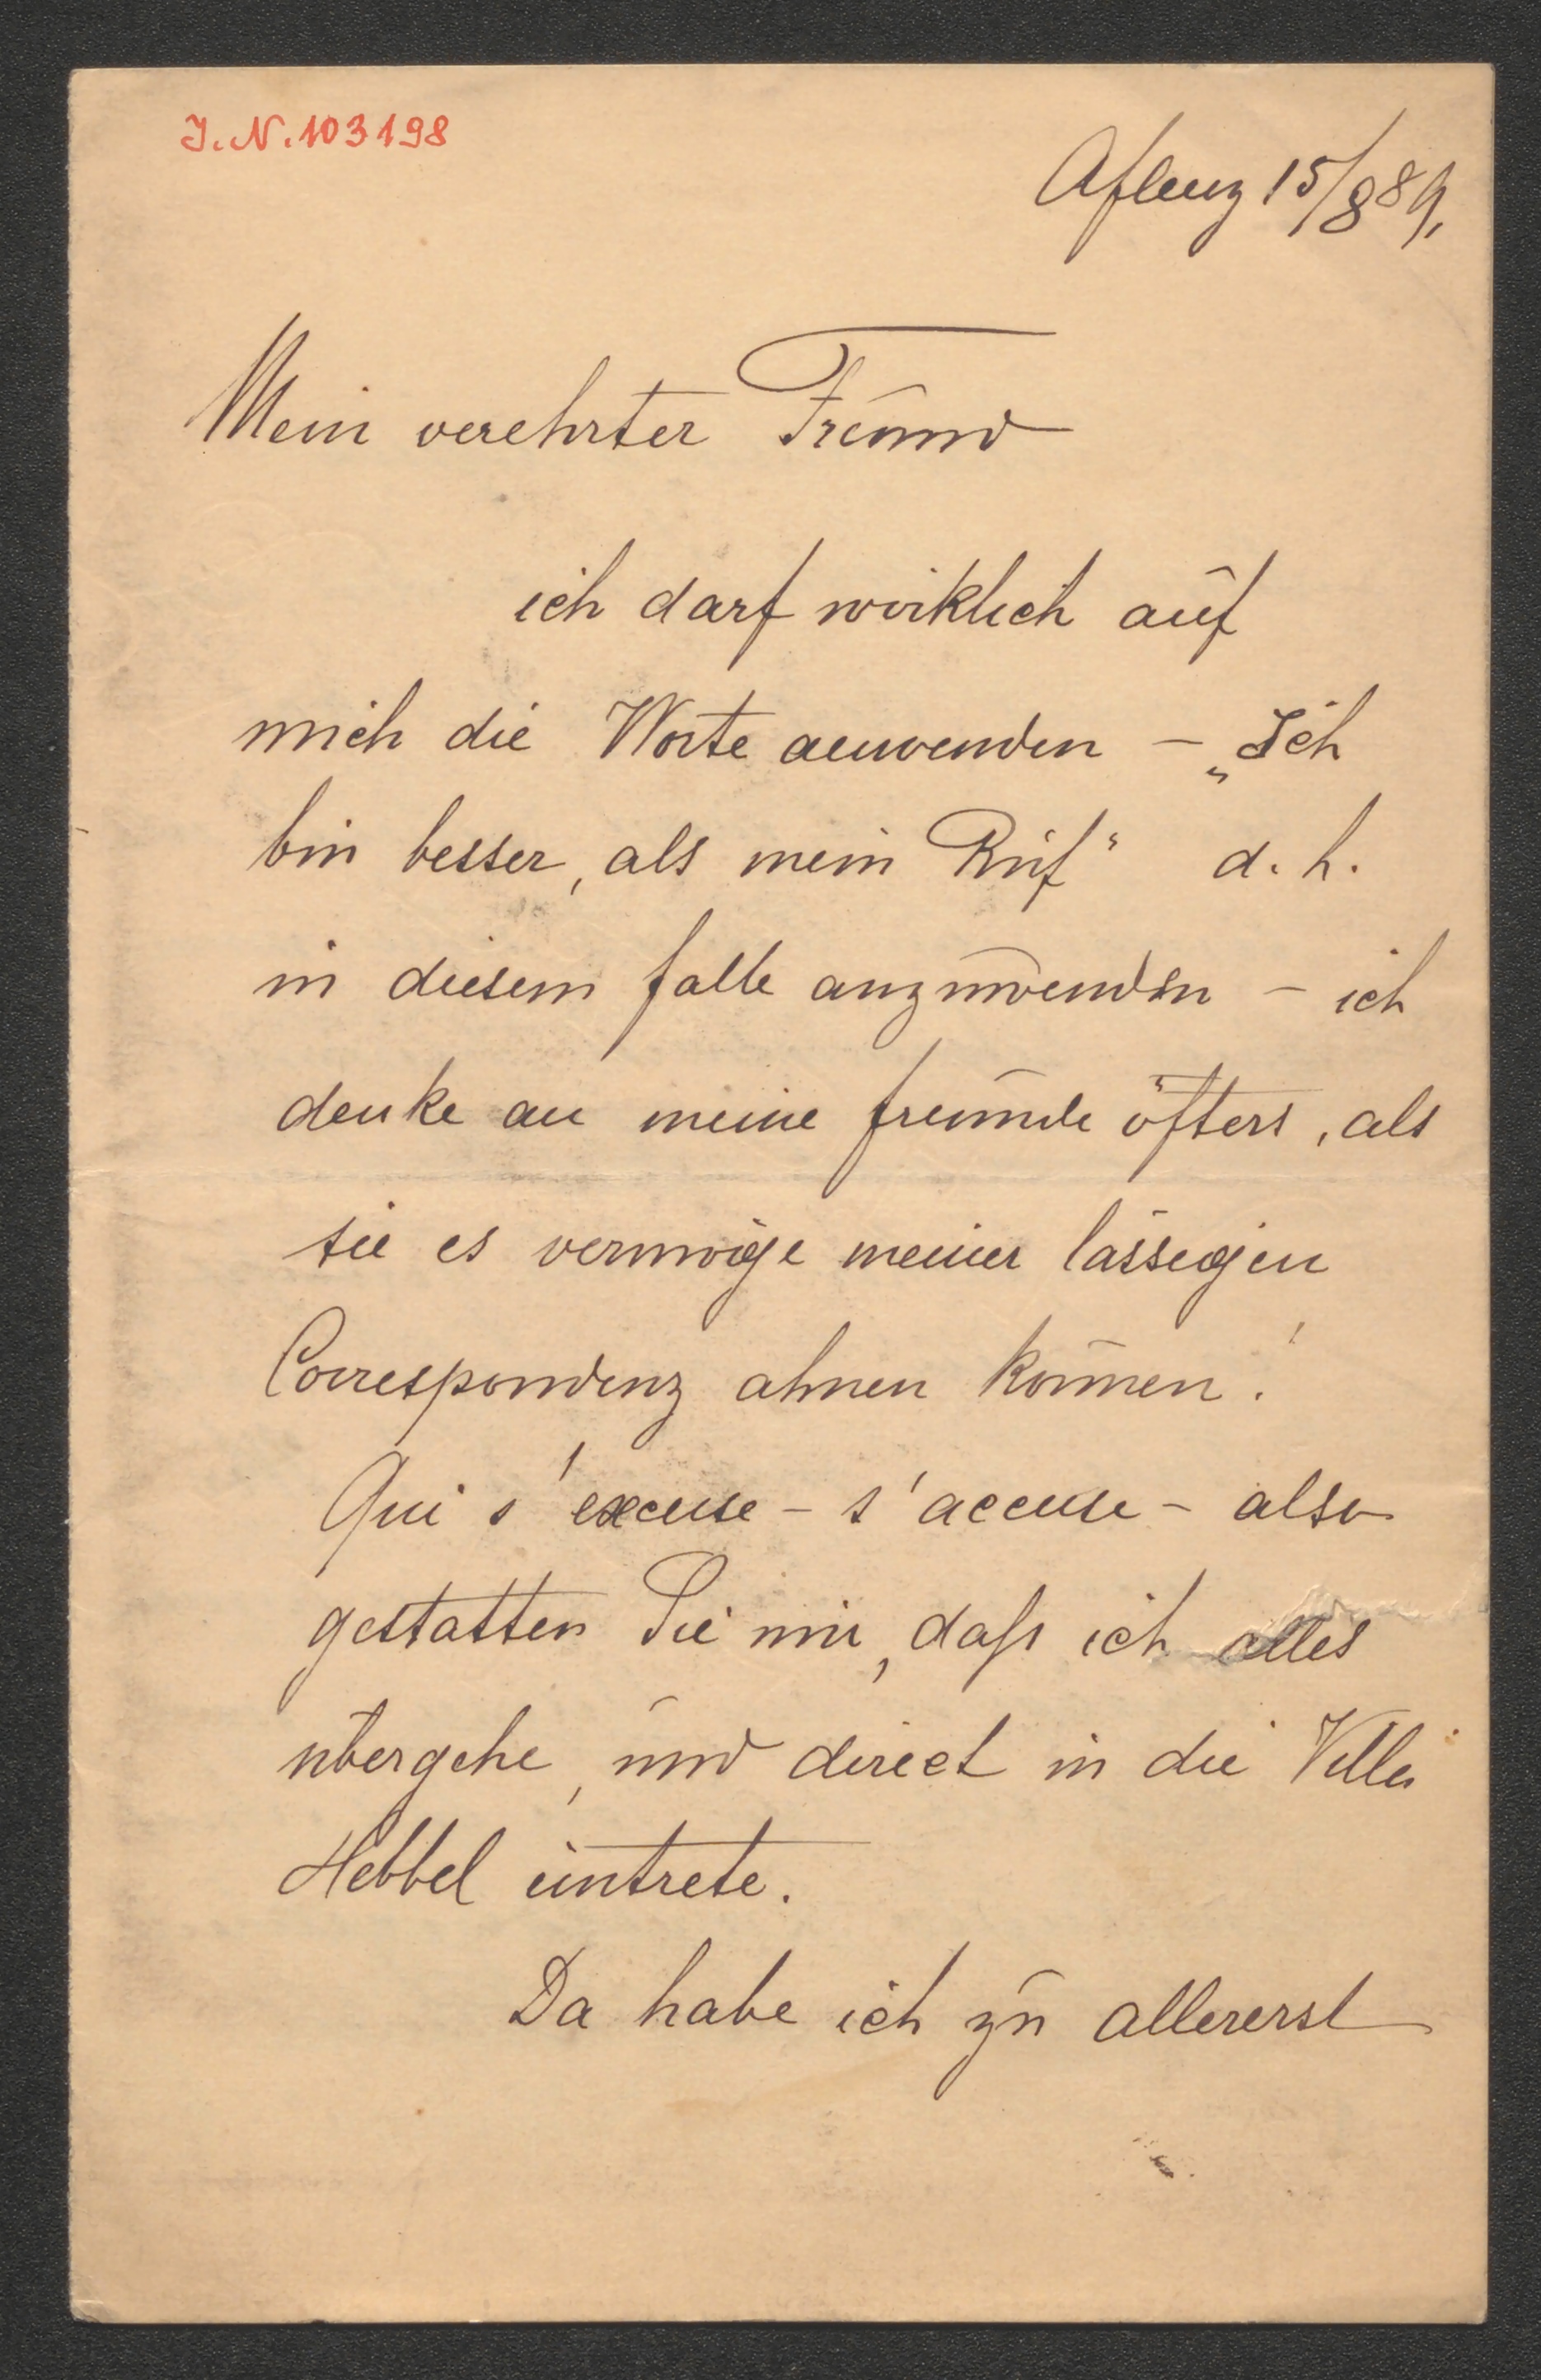 J.N.103198
Aflenz 15/8 89,
Mein verehrter Freund
ich darf wirklich auf
mich die Worte anwenden – „Ich
bin besser, als mein Ruf“ d. h.
in diesem falle anzuwenden – ich
denke an meine freunde öfters, als
sie es vermöge meiner lässigen
Correspondenz ahnen können!
Qui s'excuse – s'accuse – also
gestatten Sie mir, daß ich alles
übergehe, und direct in die Villa
Hebbel eintrete.
Da habe ich zu allererst